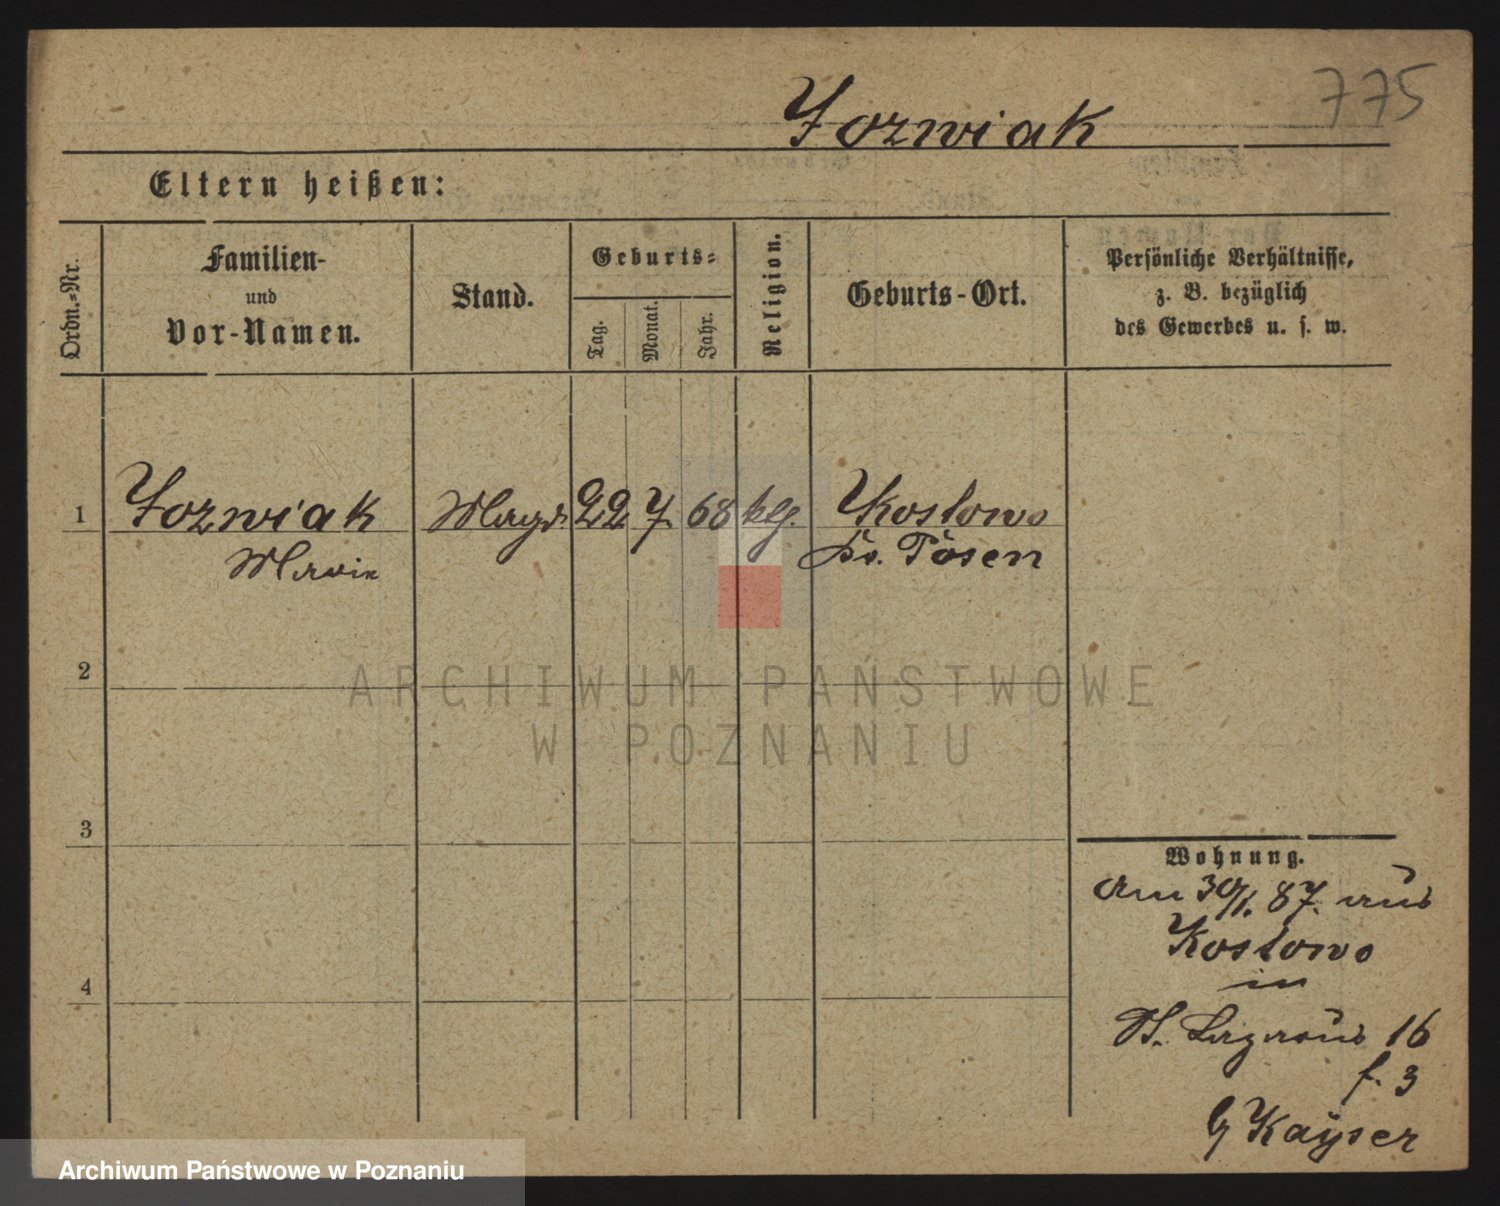 775
Jozwiak
Eltern heißen:
Ordn.=Nr.
Familien-
und
Vor-Namen.
Stand.
Geburts=
Tag.
Monat.
Jahr.
Religion.
Geburts-Ort.
Persönliche Verhältnisse,
z. B. bezüglich
des Gewerbes u. s. w.
1 Jozwiak Magd. 22 7. 68 ktl. Koslowo
Marie Kr. Posen
2
3
4
Wohnung.
am 30/1. 87. aus
Koslowo
in
St. Lazarus 16
f. 3
b/ Kayser
ARCHIWUM PAŃSTWOWE
W POZNANIU
Archiwum Państwowe w Poznaniu